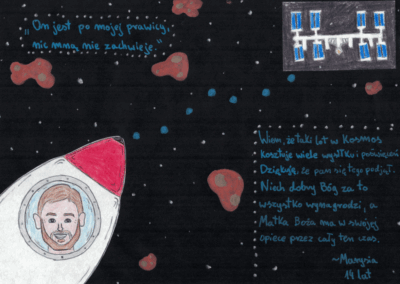 „On jest po mojej prawicy,
nic mną nie zachwieje."
Wiem, że taki lot w Kosmos
kosztuje wiele wysiłku i poświęceń
Dziękuję, że pan się tego podjął.
Niech dobry Bóg za to
wszystko wynagrodzi, a
Matka Boża ma w swojej
opiece przez cały ten czas.
~Marysia
14 lat